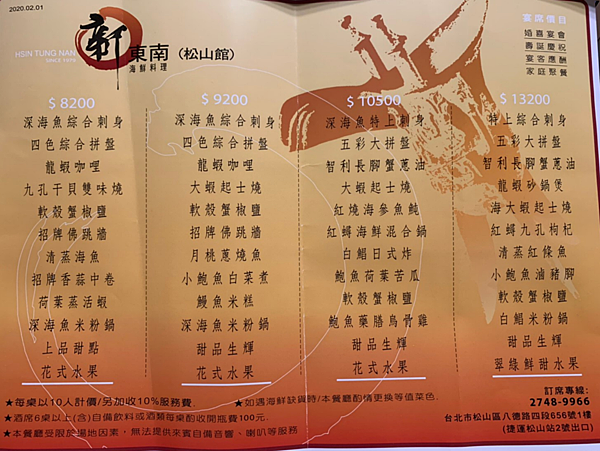 2020.02.01
HSIN TUNG NAN
SINCE 1976
新
東南
(松山館)
海鮮料理
宴席價目
婚喜宴會
壽誕慶祝
宴客應酬
家庭聚餐
$ 8200
深海魚綜合刺身
四色綜合拼盤
龍蝦咖哩
九孔干貝雙味燒
軟殼蟹椒鹽
招牌佛跳牆
清蒸海魚
招牌香蒜中卷
荷葉蒸活蝦
深海魚米粉鍋
上品甜點
花式水果
$ 9200
深海魚綜合刺身
四色綜合拼盤
龍蝦咖哩
大蝦起士燒
軟殼蟹椒鹽
招牌佛跳牆
月桃蔥燒魚
小鮑魚白菜煮
鰻魚米糕
深海魚米粉鍋
甜品生輝
花式水果
$ 10500
深海魚特上刺身
五彩大拼盤
智利長腳蟹蔥油
大蝦起士燒
紅燒海參魚魨
紅蟳海鮮混合鍋
白鯧日式炸
鮑魚荷葉苦瓜
軟殼蟹椒鹽
鮑魚藥膳烏骨雞
甜品生輝
花式水果
$ 13200
特上綜合刺身
五彩大拼盤
智利長腳蟹蔥油
龍蝦砂鍋煲
海大蝦起士燒
紅蟳九孔枸杞
清蒸紅條魚
小鮑魚滷豬腳
軟殼蟹椒鹽
白鯧米粉鍋
甜品生輝
翠綠鮮甜水果
★每桌以10人計價/另加收10%服務費.
★如遇海鮮缺貨時/本餐廳酌情更換等值菜色.
★酒席6桌以上(含)自備飲料或酒類每桌酌收開瓶費100元.
★本餐廳受限於場地因素,無法提供來賓自備音響、喇叭等服務
訂席專線:
2748-9966
台北市松山區八德路四段656號1樓
(捷運松山站2號出口)